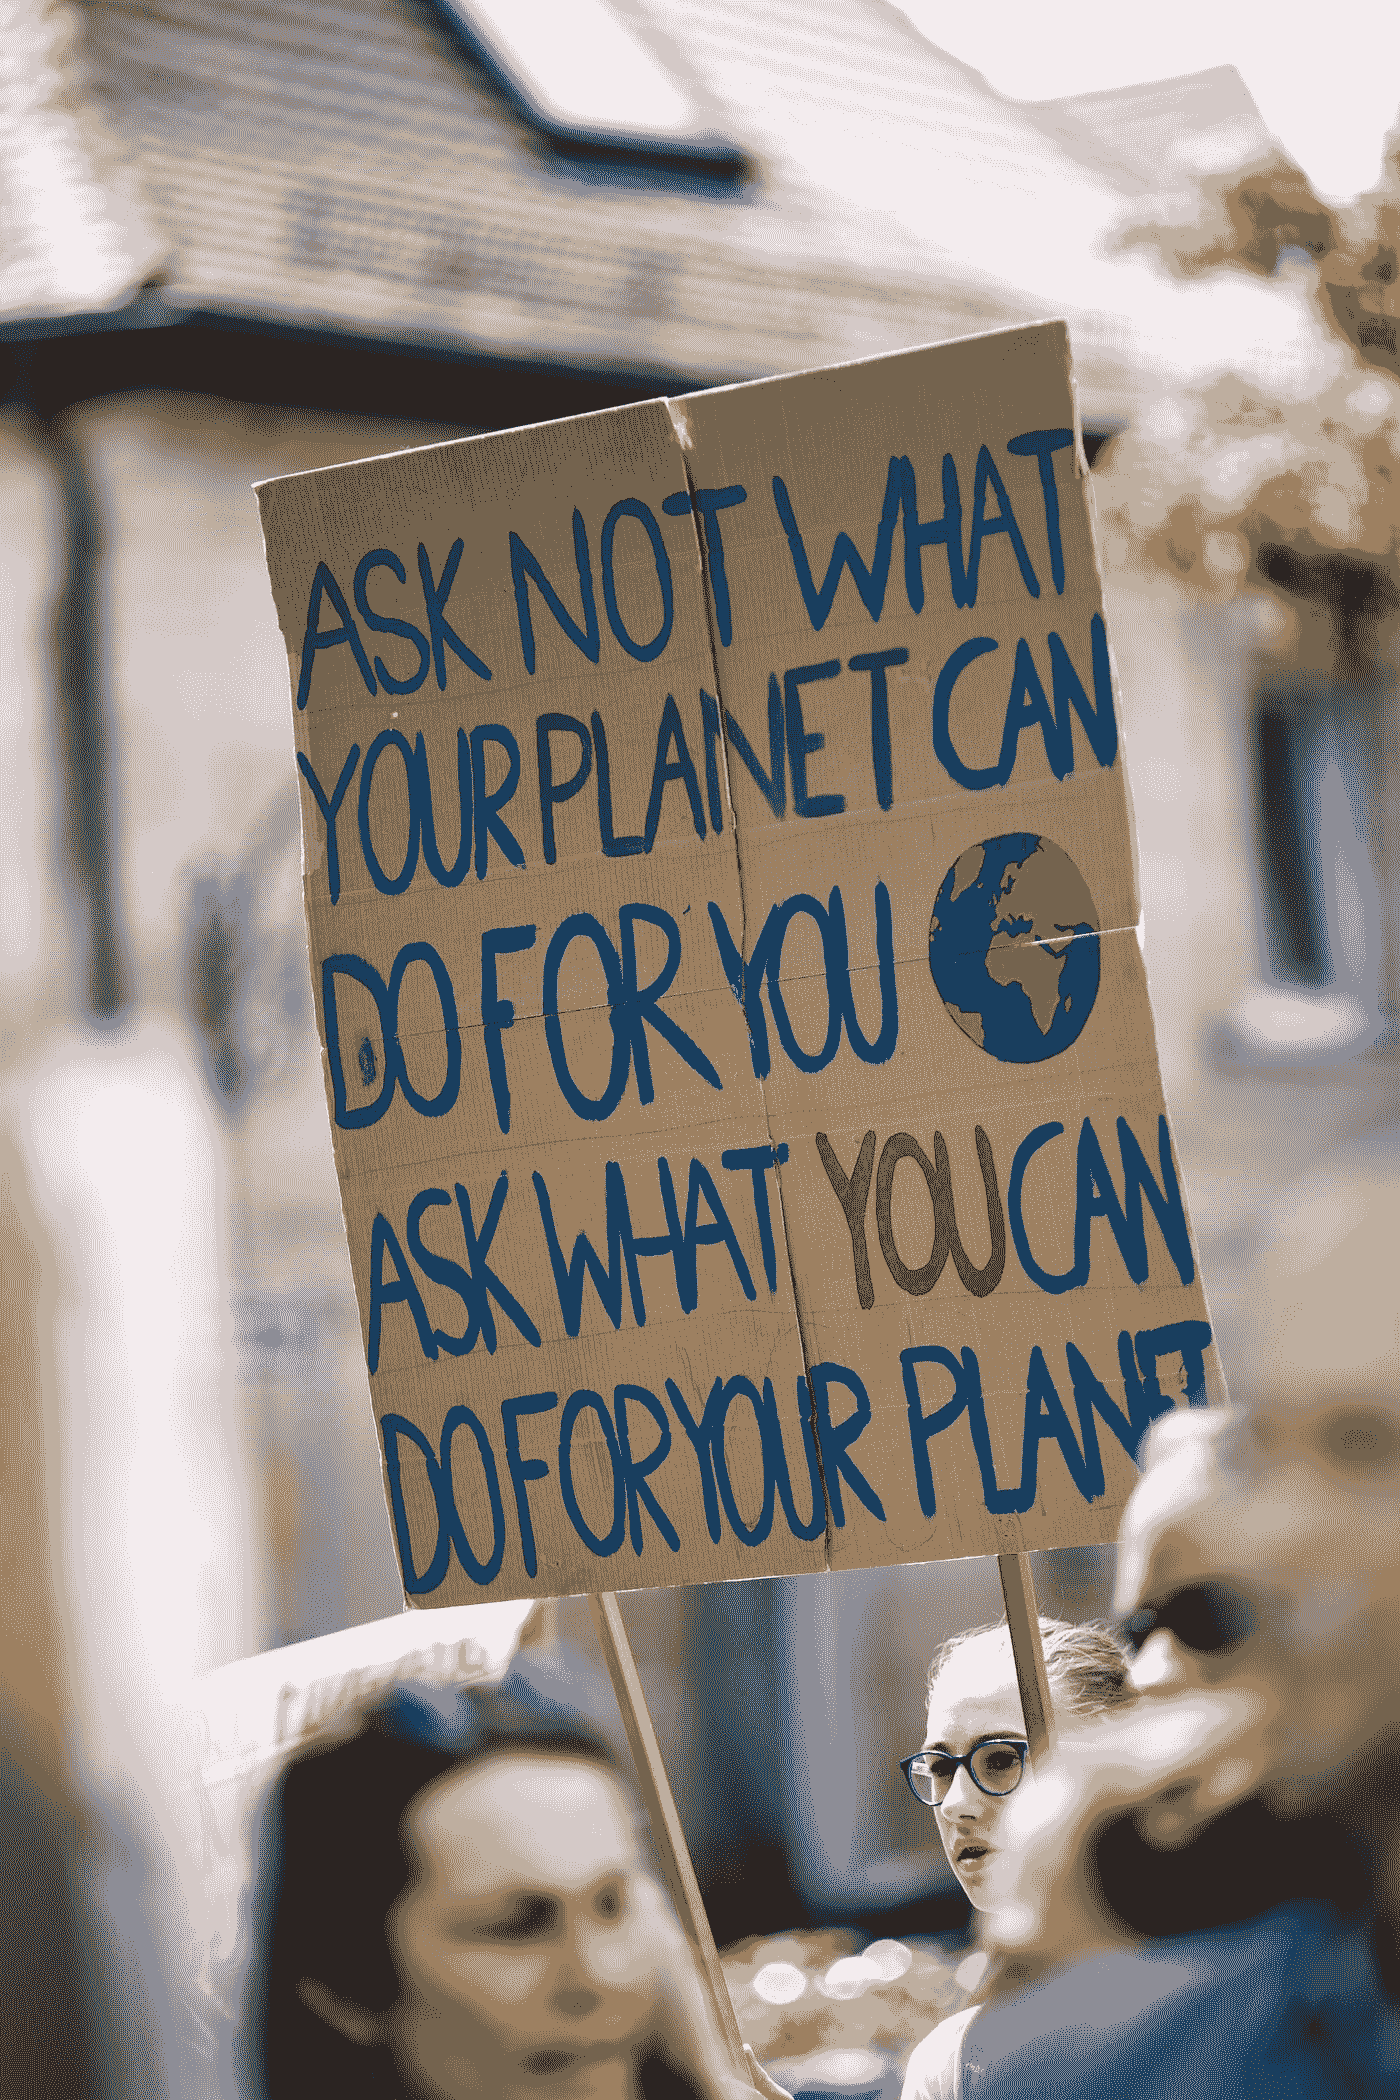 ASK NOT WHAT
YOUR PLANET CAN
DO FOR YOU
ASK WHAT YOU CAN
DO FOR YOUR PLANET